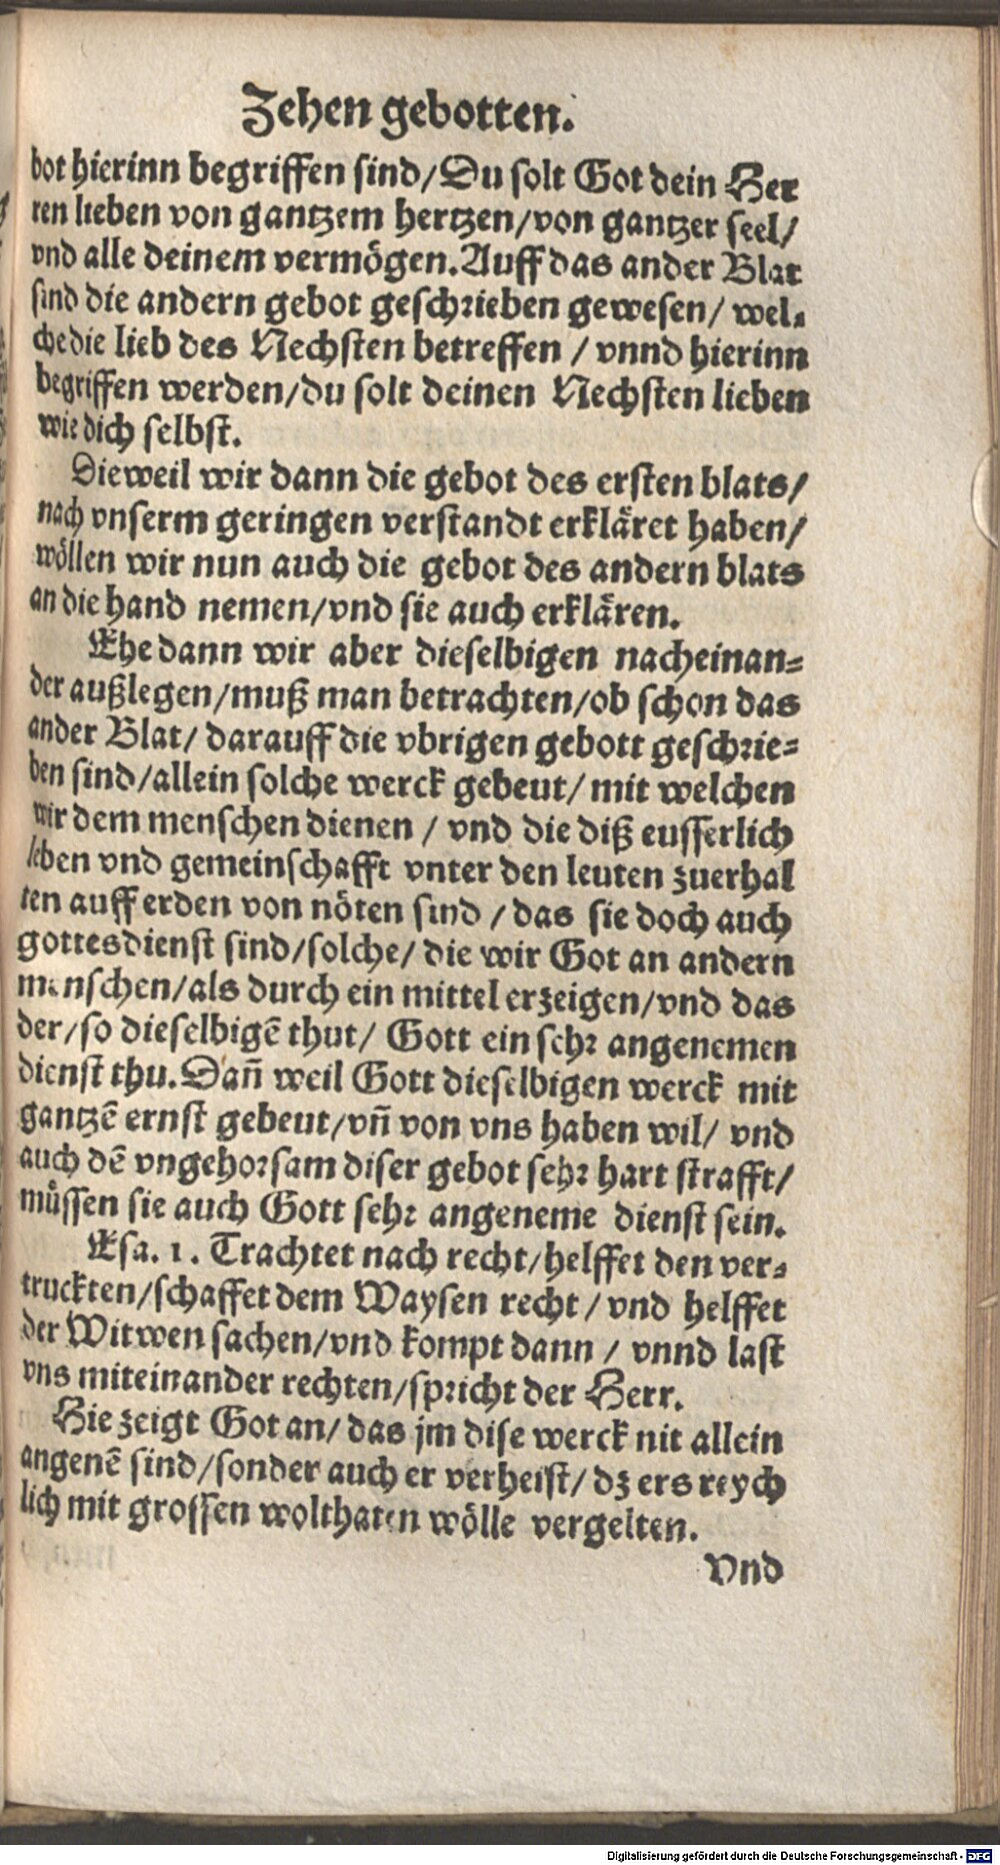 Zehen gebotten.
bot hierinn begriffen sind/Du solt Got dein Her
ren lieben von gantzem hertzen/von gantzer seel/
vnd alle deinem vermögen.Auff das ander Blat
sind die andern gebot geschrieben gewesen/ wel-
che die lieb des Nechsten betreffen / vnnd hierinn
begriffen werden/du solt deinen Nechsten lieben
wie dich selbst.
Dieweil wir dann die gebot des ersten blats/
nach vnserm geringen verstandt erkläret haben/
wöllen wir nun auch die gebot des andern blats
an die hand nemen/vnd sie auch erklären.
Ehe dann wir aber dieselbigen nacheinan-
der außlegen/muß man betrachten/ob schon das
ander Blat/ darauff die vbrigen gebott geschrie-
ben sind/allein solche werck gebeut/ mit welchen
wir dem menschen dienen / vnd die diß eusserlich
leben vnd gemeinschafft vnter den leuten zuerhal
ten auff erden von nöten sind / das sie doch auch
gottesdienst sind/solche/ die wir Got an andern
menschen/als durch ein mittel erzeigen/vnd das
der/so dieselbigē thut/ Gott ein sehr angenemen
dienst thu.Dañ weil Gott dieselbigen werck mit
gantzē ernst gebeut/vñ von vns haben wil/ vnd
auch dē vngehorsam diser gebot sehr hart strafft/
müssen sie auch Gott sehr angeneme dienst sein.
Esa. 1. Trachtet nach recht/helffet den ver-
truckten/schaffet dem Waysen recht / vnd helffet
der Witwen sachen/vnd kompt dann / vnnd last
vns miteinander rechten/spricht der Herr.
Hie zeigt Got an/ das jm dise werck nit allein
angenē sind/sonder auch er verheist/ dz ers reych
lich mit grossen wolthaten wölle vergelten.
Vnd
Digitalisierung gefördert durch die Deutsche Forschungsgemeinschaft - DFG